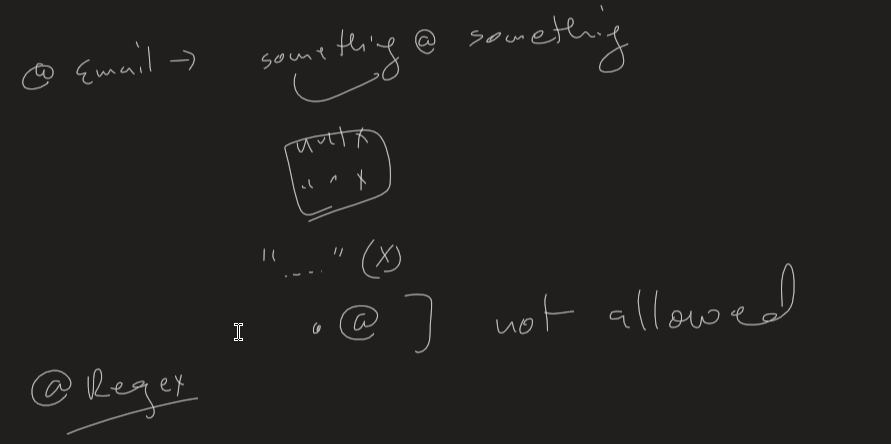 @ Email → something @ something
null X
" " X
"....." (X)
. @ ] not allowed
@ Regex